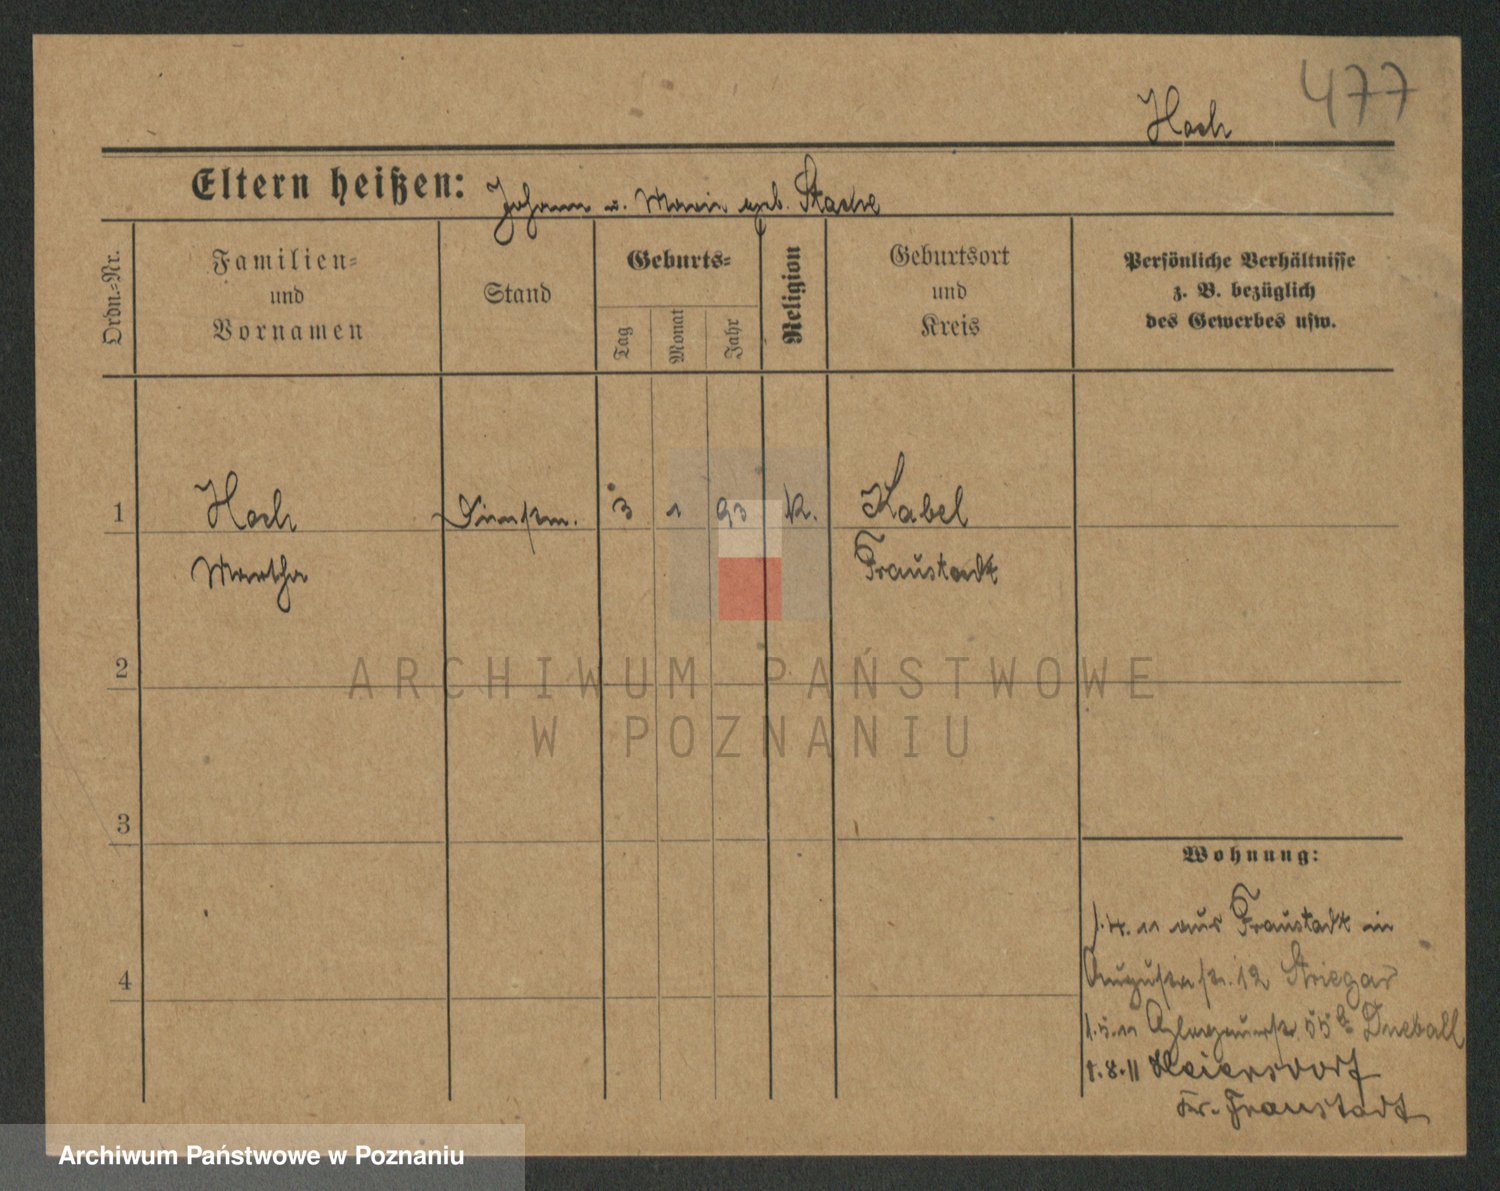 477
Hoch
Eltern heißen: Johann u. Marie geb. Stache
Ordn.-Nr.
Familien-
und
Vornamen
Stand
Geburts-
Tag
Monat
Jahr
Religion
Geburtsort
und
Kreis
Persönliche Verhältnisse
z. B. bezüglich
des Gewerbes usw.
1 Hoch Dienstm. 3 1 93 k. Kabel
Martha Fraustadt
2
3
4
Wohnung:
1.4.11 aus Fraustadt in
Augustastr. 12 Striegar
55 Dueball
1.8.11 Heiersdorf
Kr. Fraustadt
ARCHIWUM PAŃSTWOWE
W POZNANIU
Archiwum Państwowe w Poznaniu